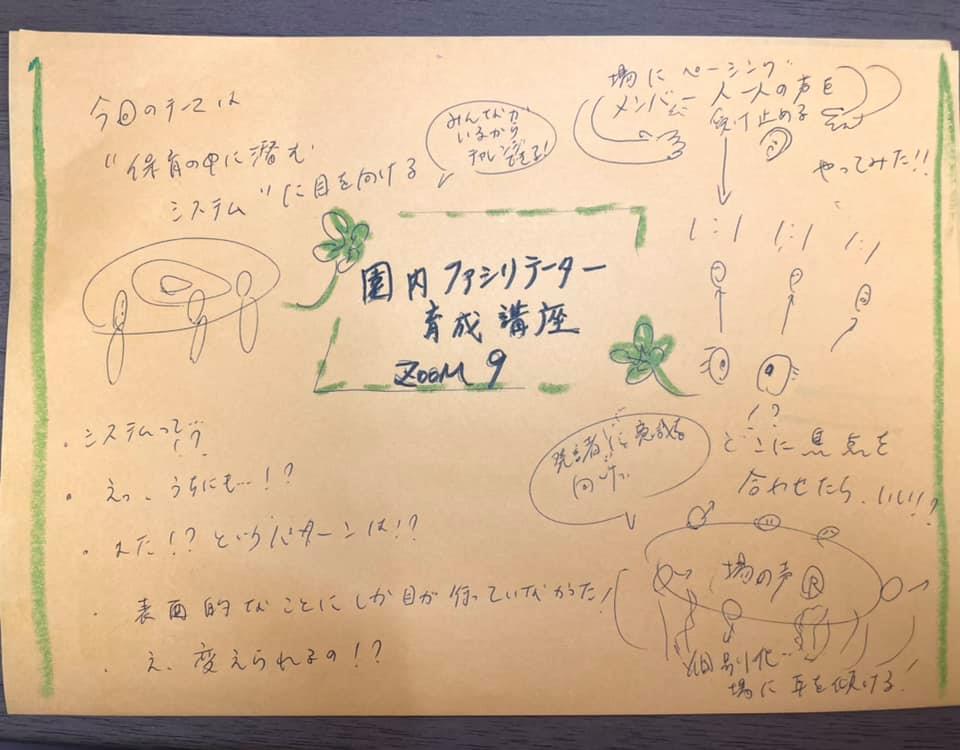 今回のテーマは
"保育の中に潜む
システム"に目を向ける
みんなが
いるから
チャレンジできる!
場にペーシング
メンバー一人一人の声を
受け止める
やってみた!!
1:1 1:1 1:1
園内ファシリテーター
育成講座
ZOOM 9
・システムって…!?
・えっ、うちにも…!?
・また!?というパターンは!?
・表面的なことにしか目が行っていなかった!
・え、変えられるの!?
!?
どこに焦点を
合わせたら、いい!?
発言者に
向けず
場の声 R
個別化…
場に耳を傾ける!